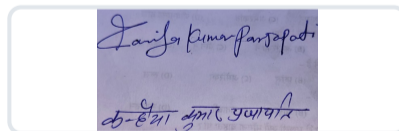 Kaniya Kumar Parjapati
कन्हैया कुमार प्रजापति